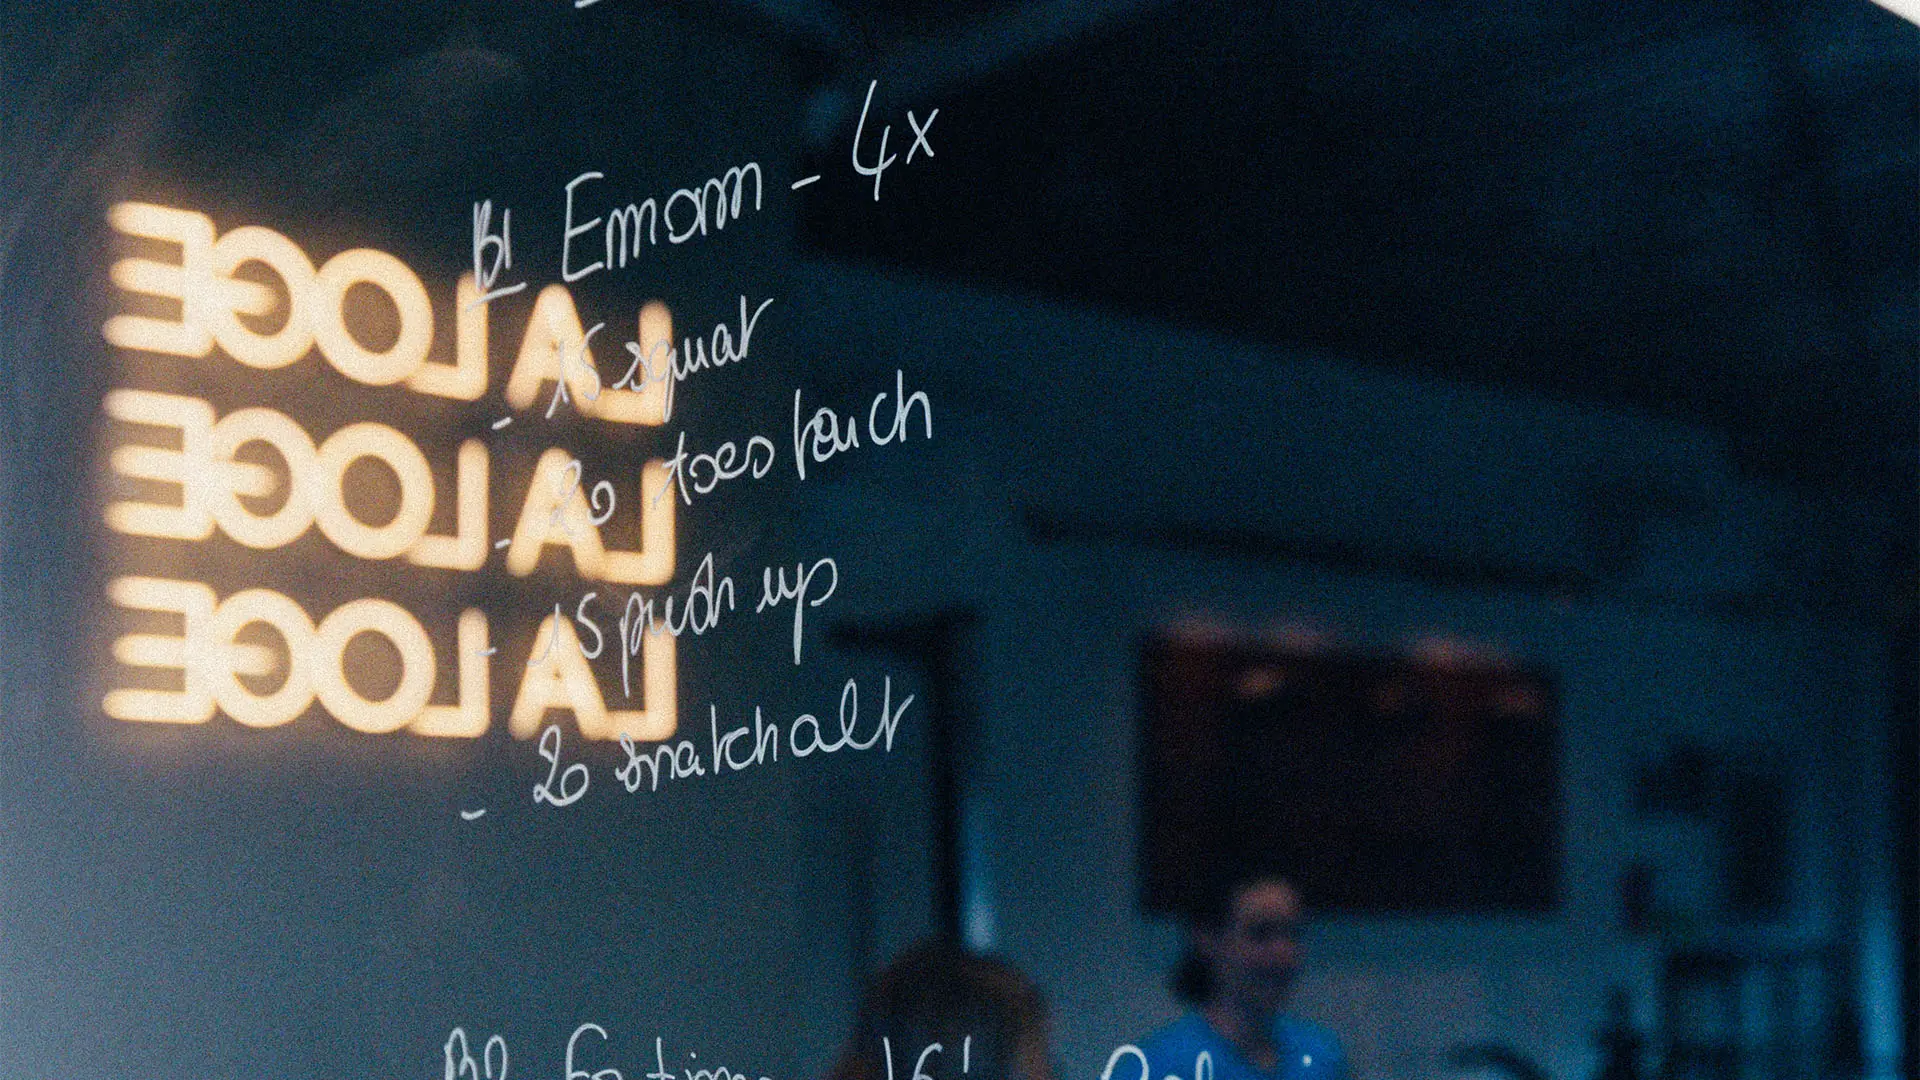 B1 Emom - 4x
- 15 squat
- 20 toes touch
- 15 push up
- 20 snatch alt
B2 For time 16'
LA LOGE
LA LOGE
LA LOGE